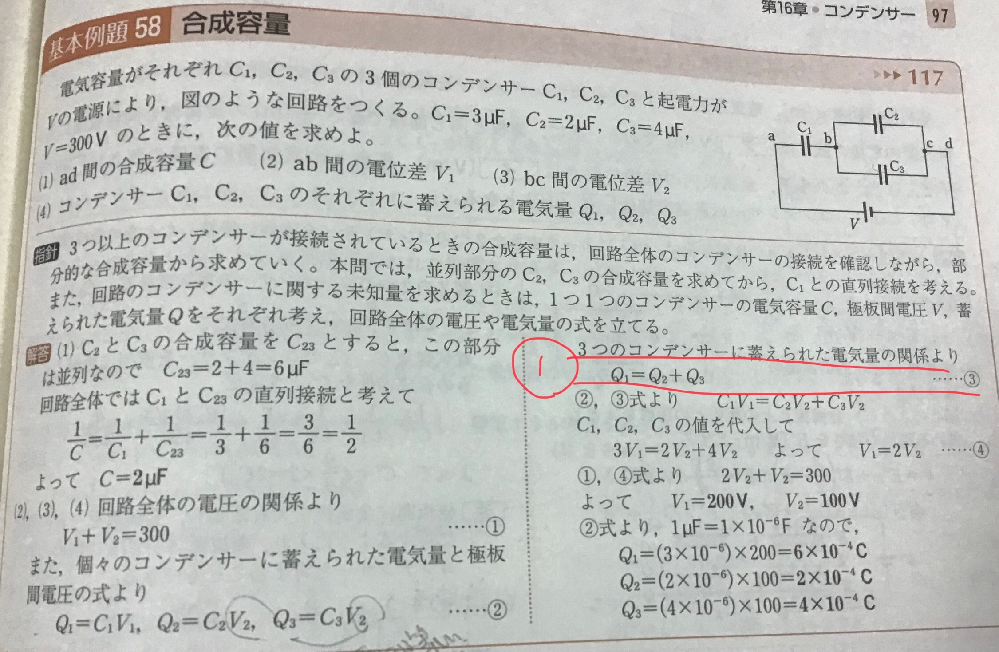 第16章・コンデンサー 97
基本例題 58 合成容量
▷▶▶ 117
電気容量がそれぞれ C₁, C₂, C₃ の 3 個のコンデンサー C₁, C₂, C₃ と起電力が
Vの電源により, 図のような回路をつくる。C₁=3μF, C₂=2μF, C₃=4μF,
V=300V のときに, 次の値を求めよ。
(1) ad 間の合成容量 C (2) ab 間の電位差 V₁ (3) bc 間の電位差 V₂
(4) コンデンサー C₁, C₂, C₃ のそれぞれに蓄えられる電気量 Q₁, Q₂, Q₃
a C₁ b C₂ C₃ c d V
指針 3つ以上のコンデンサーが接続されているときの合成容量は, 回路全体のコンデンサーの接続を確認しながら, 部
分的な合成容量から求めていく。本問では, 並列部分の C₂, C₃ の合成容量を求めてから, C₁ との直列接続を考える。
また, 回路のコンデンサーに関する未知量を求めるときは, 1つ1つのコンデンサーの電気容量 C, 極板間電圧 V, 蓄
えられた電気量 Q をそれぞれ考え, 回路全体の電圧や電気量の式を立てる。
解答 (1) C₂ と C₃ の合成容量を C₂₃ とすると, この部分
は並列なので C₂₃=2+4=6μF
回路全体では C₁ と C₂₃ の直列接続と考えて
1/C=1/C₁+1/C₂₃=1/3+1/6=3/6=1/2
よって C=2μF
(2), (3), (4) 回路全体の電圧の関係より
V₁+V₂=300 ……①
また, 個々のコンデンサーに蓄えられた電気量と極板
間電圧の式より
Q₁=C₁V₁, Q₂=C₂V₂, Q₃=C₃V₂ ……②
1
3つのコンデンサーに蓄えられた電気量の関係より
Q₁=Q₂+Q₃ ……③
②, ③式より C₁V₁=C₂V₂+C₃V₂
C₁, C₂, C₃ の値を代入して
3V₁=2V₂+4V₂ よって V₁=2V₂ ……④
①, ④式より 2V₂+V₂=300
よって V₁=200V, V₂=100V
②式より, 1μF=1×10⁻⁶F なので,
Q₁=(3×10⁻⁶)×200=6×10⁻⁴C
Q₂=(2×10⁻⁶)×100=2×10⁻⁴ C
Q₃=(4×10⁻⁶)×100=4×10⁻⁴ C